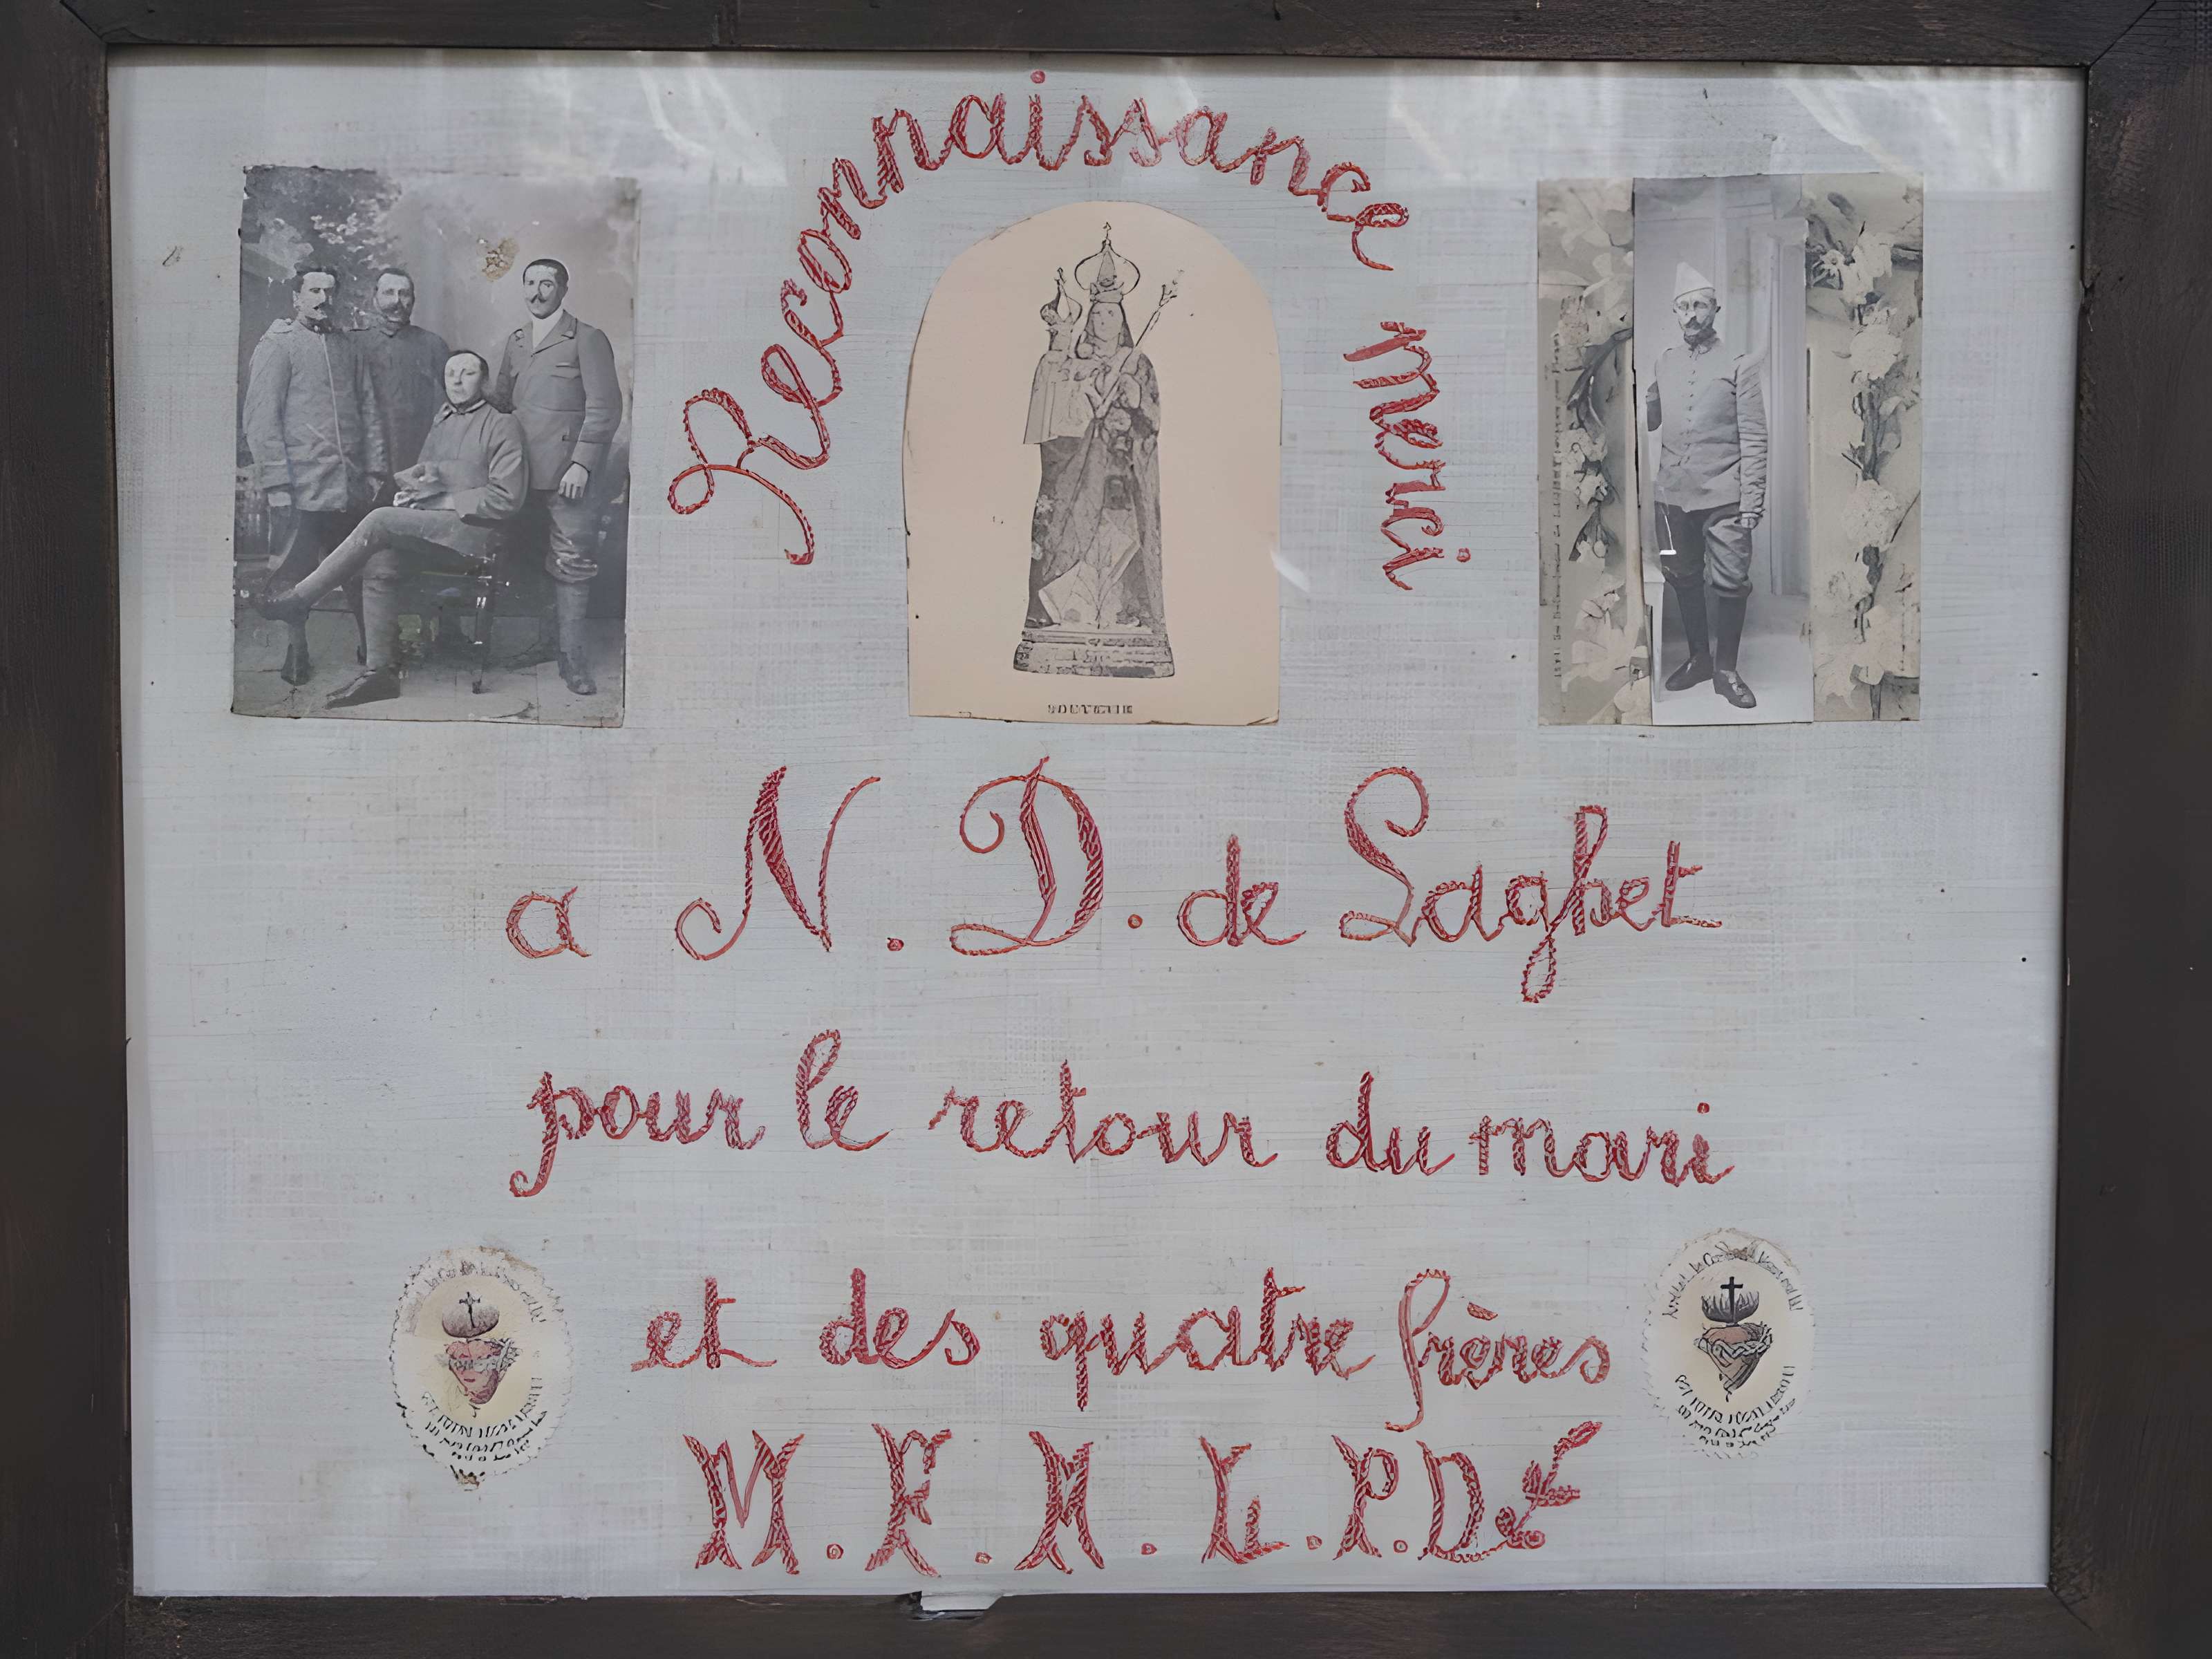 Reconnaissance merci
a N. D. de Laghet
pour le retour du mari
et des quatre frères
M. F. H. L. P. D